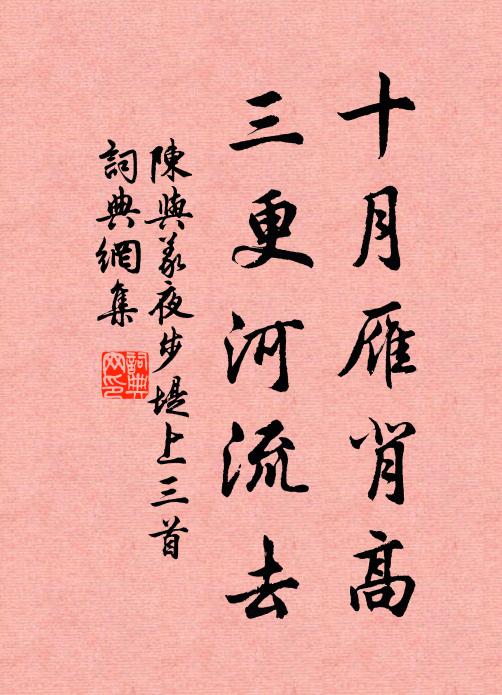 十月雁肖高
三更河流去
陳與義夜步堤上三首
詞典網集
詞典
网印